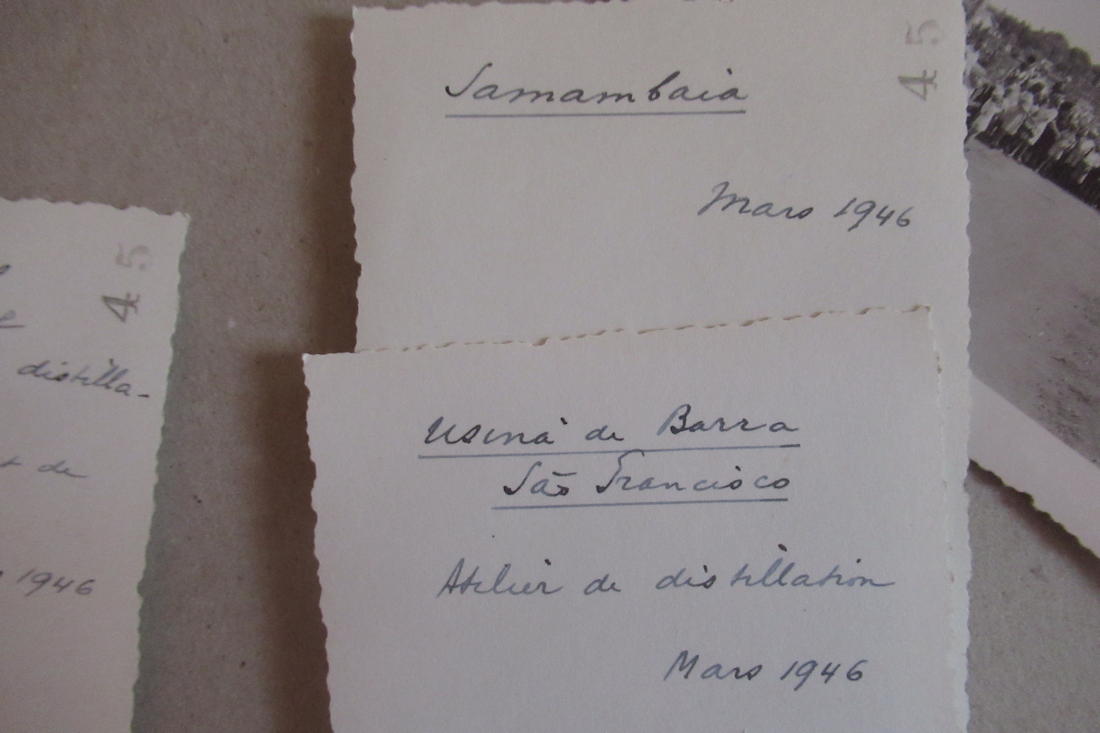 45
Samambaia
Mars 1946
Usina de Barra
São Francisco
Atelier de distillation
Mars 1946
45
distilla-
de
1946